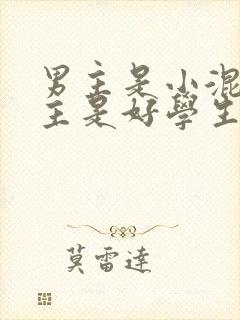 男主是小混
主是好學生
莫雷達